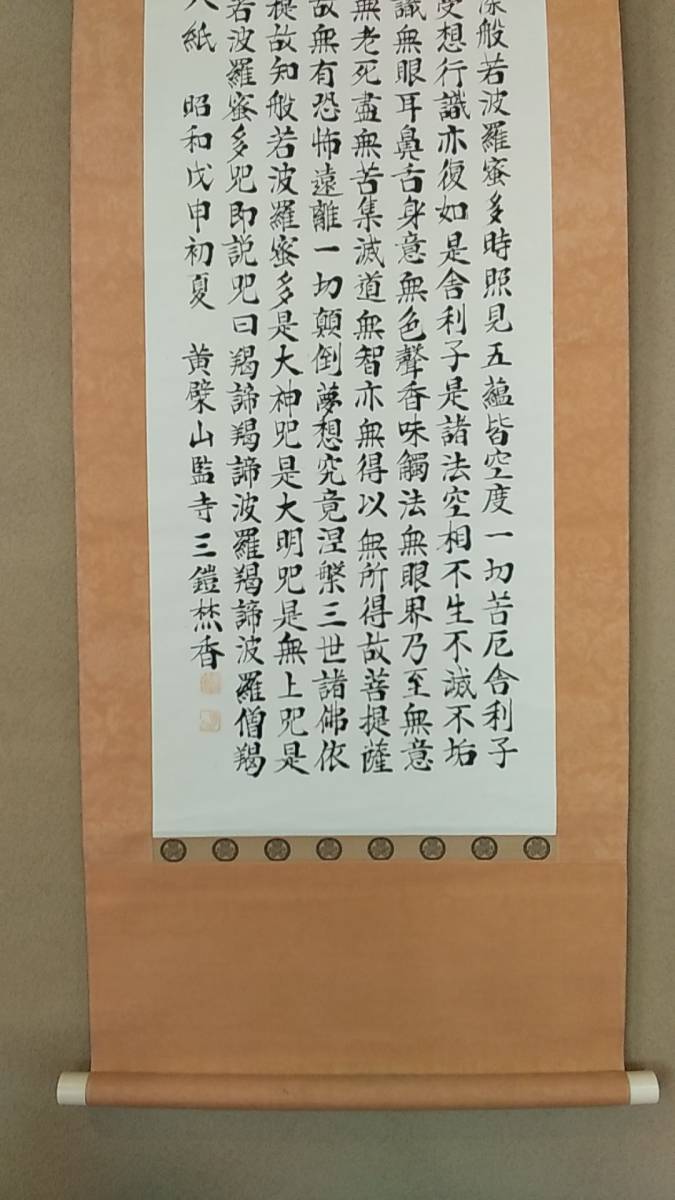 深般若波羅蜜多時照見五蘊皆空度一切苦厄舍利子
受想行識亦復如是舍利子是諸法空相不生不滅不垢
識無眼耳鼻舌身意無色聲香味觸法無眼界乃至無意
無老死盡無苦集滅道無智亦無得以無所得故菩提薩
故無有恐怖遠離一切顛倒夢想究竟涅槃三世諸佛依
提故知般若波羅蜜多是大神咒是大明咒是無上咒是
若波羅蜜多咒即説咒曰羯諦羯諦波羅羯諦波羅僧羯
紙 昭和戊申初夏 黄檗山監寺三鎧焚香